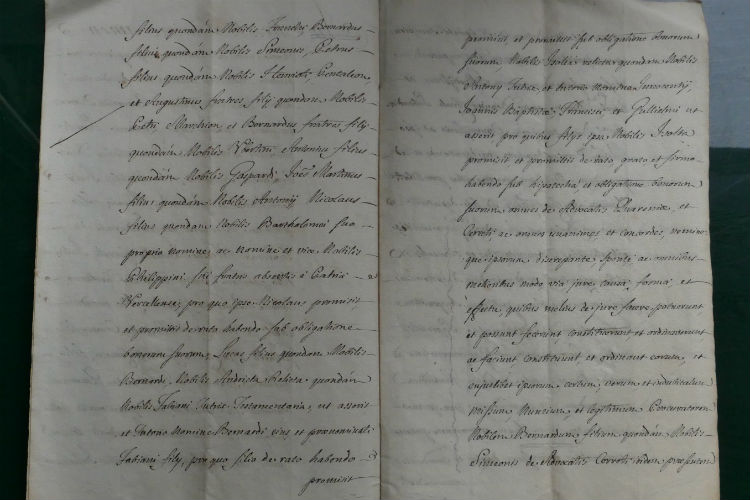 filius quondam Nobilis Bernardus
filius quondam Nobilis Simeonis, Petrus
filius quondam Nobilis
et Augustinus, fratres filij quondam Nobilis
Petri et Bernardus fratres filij
quondam Nobilis Antonius filius
quondam Nobilis Gaspardi Martinus
filius quondam Nobilis Antonij Nicolaus
filius quondam Nobilis Bartholomei suo
proprio nomine, ac nomine et vice Nobilis
Philippini sui fratris absentis à Patria
Vercellense, pro quo ipse Nicolaus promisit
et promittit de rato habendo sub obligatione
bonorum suorum, Lucas filius quondam Nobilis
Bernardi, Nobilis Andrieta Relicta quondam
Nobilis Fabiani Tutrix Testamentaria, ut asserit
et Tutorio Nomine Bernardi eius et prænominati
Fabiani filij, pro quo filio de rato habendo
promisit
promisit, et promittit sub obligatione bonorum
suorum Nobilis Isolta relicta quondam Nobilis
Antonij Tutrix et tutorio nomine Innocentij,
Joannis Baptistæ Francisci et Gullielmi ut
asserit pro quibus filijs ipsa Nobilis Isolta
promisit et promittit de rato, grato et firmo
habendo sub hipotecha et obligatione bonorum
suorum omnes de Advocatis Quaregnæ, et
Cerreti ac omnes unanimes et concordes, nemine
que ipsorum discrepante sponte ac omnibus
melioribus modo via jure causa forma et
effectu, quibus melius de jure facere potuerunt
et possunt fecerunt constituerunt et ordinaverunt
ac faciunt constituunt et ordinant eorum, et
cujuslibet ipsorum certum, verum et indubitatum
missum Nuncium, et legitimum Procuratorem
Nobilem Bernardum filium quondam Nobilis
Simeonis de Advocatis Cerreti ibidem præsentem